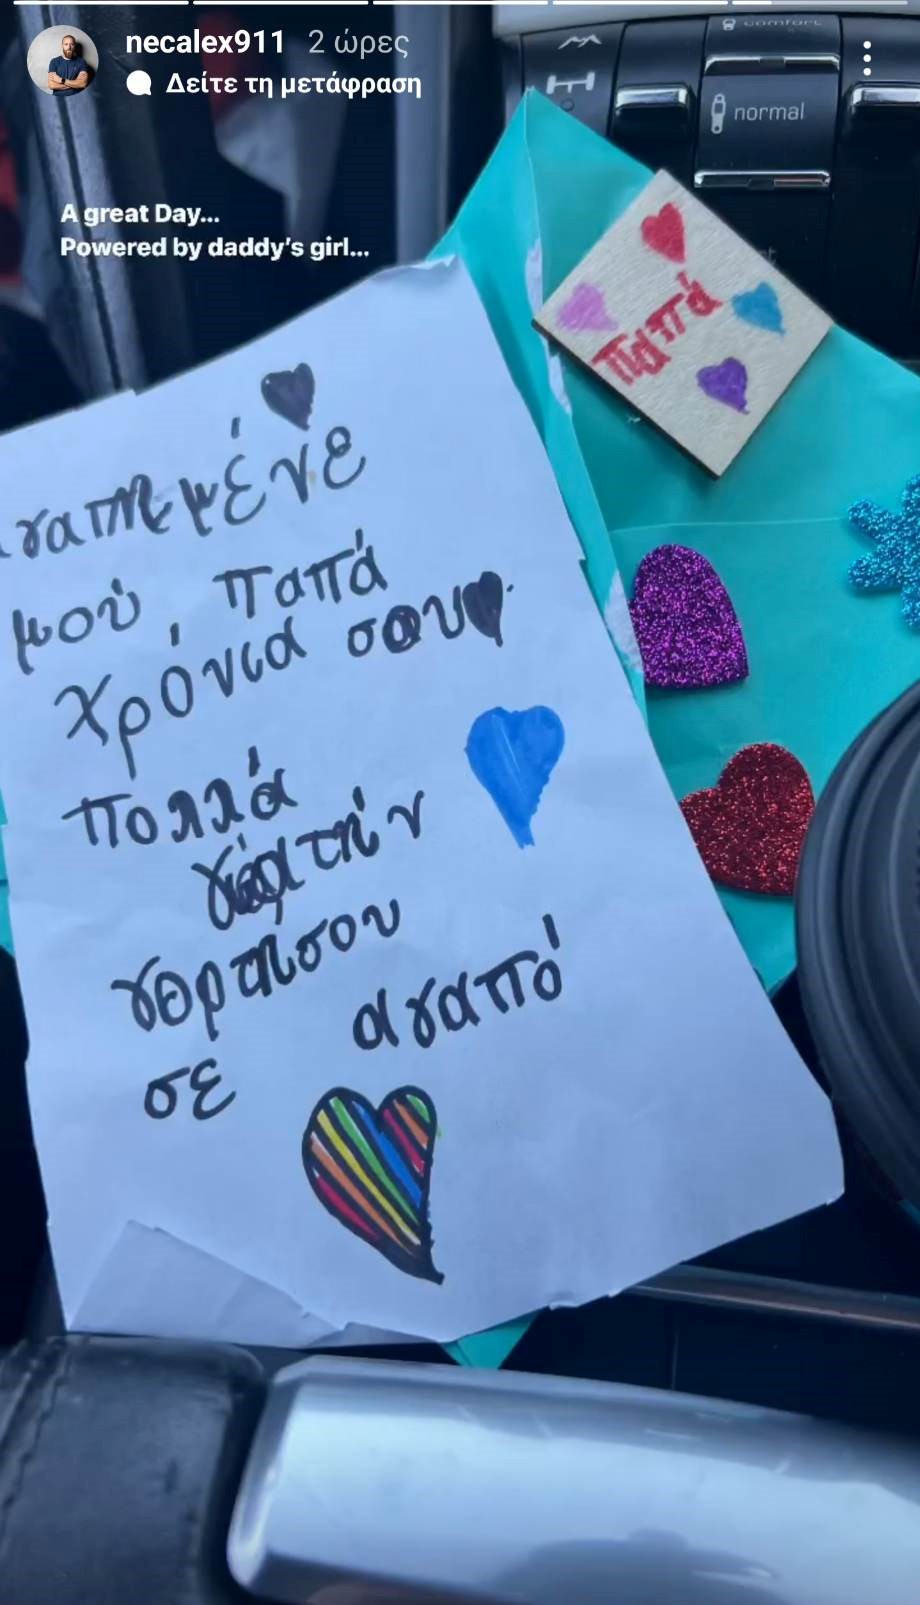 necalex911 2 ώρες
Δείτε τη μετάφραση
comfort
normal
A great Day...
Powered by daddy's girl...
παπά
αγαπημένε
μού παπά
χρόνια σου
πολλά
την
γορτήσου
σε αγαπό